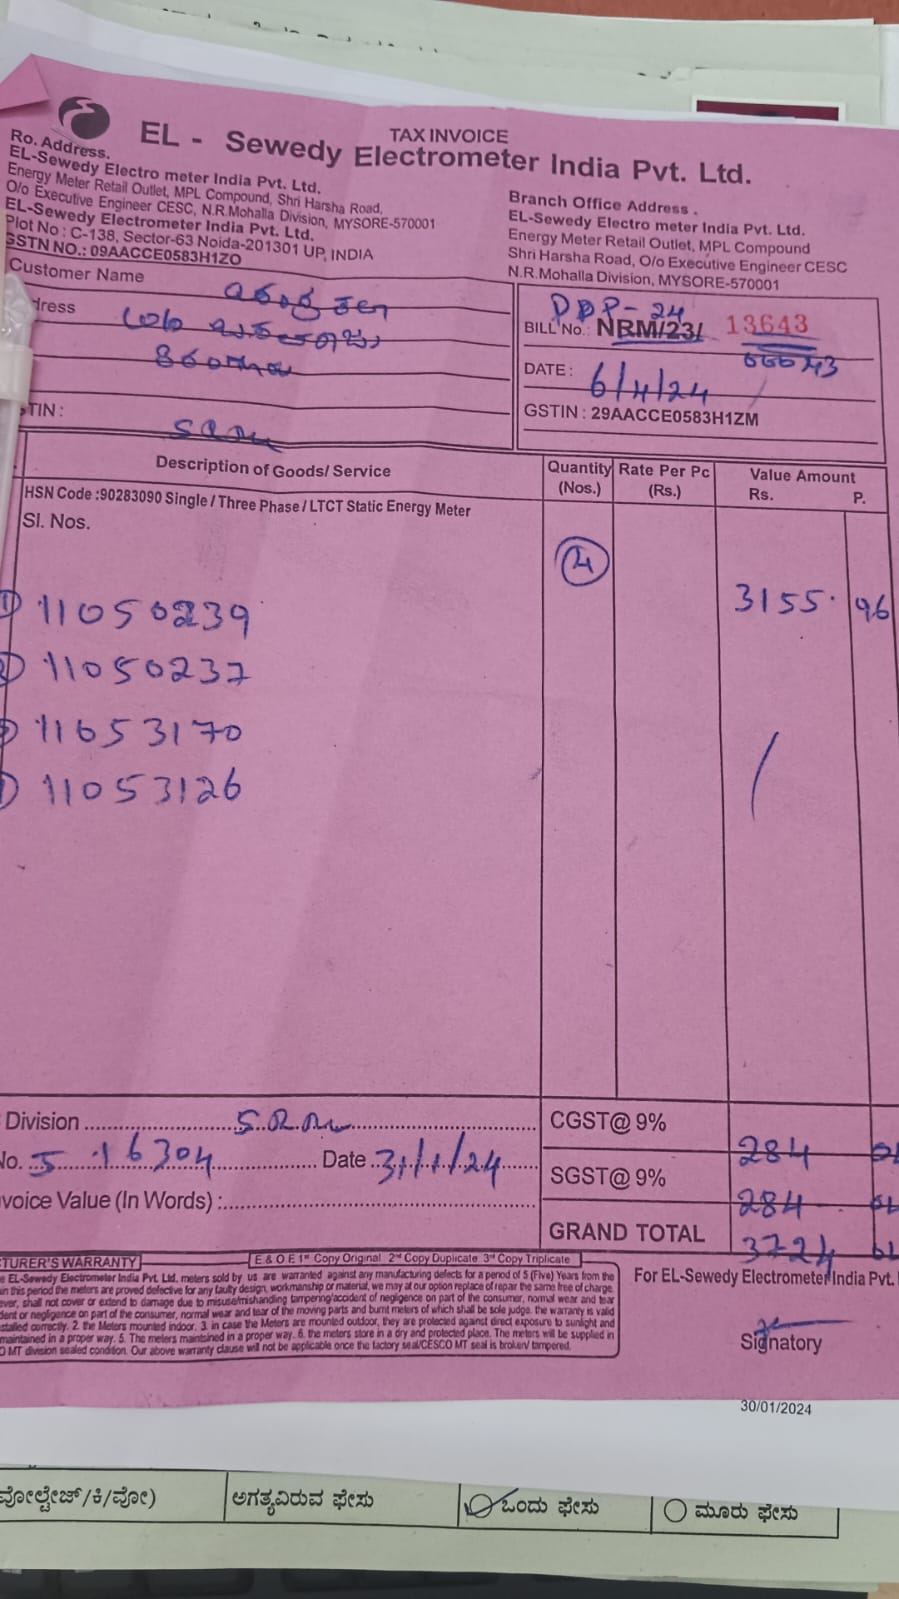 TAX INVOICE
EL - Sewedy Electrometer India Pvt. Ltd.
Ro. Address.
EL-Sewedy Electro meter India Pvt. Ltd.
Energy Meter Retail Outlet, MPL Compound, Shri Harsha Road,
O/o Executive Engineer CESC, N.R.Mohalla Division, MYSORE-570001
EL-Sewedy Electrometer India Pvt. Ltd.
Plot No : C-138, Sector-63 Noida-201301 UP, INDIA
GSTN NO.: 09AACCE0583H1ZO
Branch Office Address .
EL-Sewedy Electro meter India Pvt. Ltd.
Energy Meter Retail Outlet, MPL Compound
Shri Harsha Road, O/o Executive Engineer CESC
N.R.Mohalla Division, MYSORE-570001
Customer Name
dress
TIN :
BILL No.: NRM/23/ 13643
DATE : 6/4/24
GSTIN : 29AACCE0583H1ZM
Description of Goods/ Service Quantity (Nos.) Rate Per Pc (Rs.) Value Amount Rs. P.
HSN Code :90283090 Single / Three Phase / LTCT Static Energy Meter
Sl. Nos.
4
3155.96
1 11050239
2 11050237
11053170
11053126
Division
CGST@ 9% 284
No. 5 16304 Date 31/1/24
SGST@ 9% 284
voice Value (In Words) :
GRAND TOTAL 3724
TURER'S WARRANTY E & O E 1st Copy Original 2nd Copy Duplicate 3rd Copy Triplicate
e EL-Sewedy Electrometer India Pvt. Ltd. meters sold by us are warranted against any manufacturing defects for a period of 5 (Five) Years from the
in this period the meters are proved defective for any faulty design, workmanship or material, we may at our option replace of repair the same free of charge.
ever, shall not cover or extend to damage due to misuse/mishanding tampering/accident of negligence on part of the consumer, normal wear and tear
dent or negligence on part of the consumer, normal wear and tear of the moving parts and burnt meters of which shall be sole judge. the warranty is valid
stalled correctly. 2. the Meters mounted indoor. 3. in case the Meters are mounted outdoor, they are protected against direct exposure to sunlight and
maintained in a proper way. 5. The meters maintsined in a proper way. 6. the meters store in a dry and protected place. The meters will be supplied in
O MT division sealed condition. Our above warranty clause will not be applicable once the factory seal/CESCO MT seal is broken/ tampered.
For EL-Sewedy Electrometer India Pvt.
Signatory
30/01/2024
ವೋಲ್ಟೇಜ್/ಕಿ/ವೋ) ಅಗತ್ಯವಿರುವ ಫೇಸು ಒಂದು ಫೇಸು ಮೂರು ಫೇಸು